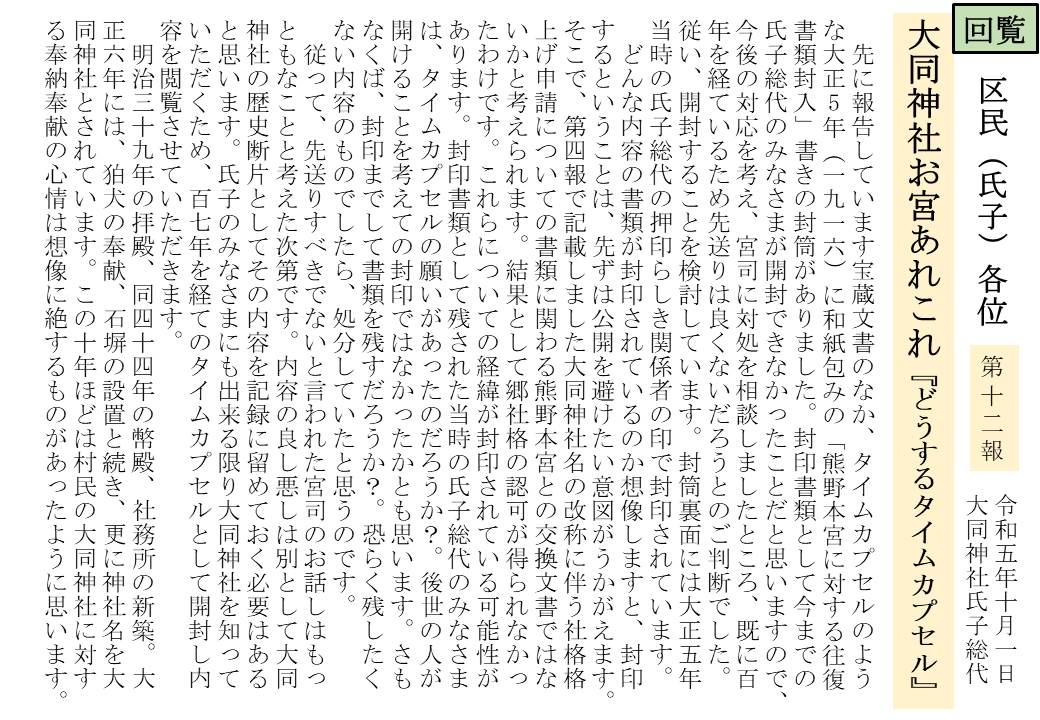 回覧
区民（氏子）各位
第十二報
令和五年十月一日
大同神社氏子総代
大同神社お宮あれこれ『どうするタイムカプセル』
先に報告しています宝蔵文書のなか、タイムカプセルのよう
な大正５年（一九一六）に和紙包みの「熊野本宮に対する往復
書類封入」書きの封筒がありました。封印書類として今までの
氏子総代のみなさまが開封できなかったことだと思いますので、
今後の対応を考え、宮司に対処を相談しましたところ、既に百
年を経ているため先送りは良くないだろうとのご判断でした。
従い、開封することを検討しています。封筒裏面には大正五年
当時の氏子総代の押印らしき関係者の印で封印されています。
どんな内容の書類が封印されているのか想像しますと、封印
するということは、先ずは公開を避けたい意図がうかがえます。
そこで、第四報で記載しました大同神社名の改称に伴う社格格
上げ申請についての書類に関わる熊野本宮との交換文書ではな
いかと考えられます。結果として郷社格の認可が得られなかっ
たわけです。これらについての経緯が封印されている可能性が
あります。封印書類として残された当時の氏子総代のみなさま
は、タイムカプセルの願いがあったのだろうか？。後世の人が
開けることを考えての封印ではなかったかとも思います。さも
なくば、封印までして書類を残すだろうか？。恐らく残したく
ない内容のものでしたら、処分していたと思うのです。
従って、先送りすべきでないと言われた宮司のお話しはもっ
ともなことと考えた次第です。内容の良し悪しは別として大同
神社の歴史断片としてその内容を記録に留めておく必要はある
と思います。氏子のみなさまにも出来る限り大同神社を知って
いただくため、百七年を経てのタイムカプセルとして開封し内
容を閲覧させていただきます。
明治三十九年の拝殿、同四十四年の幣殿、社務所の新築。大
正六年には、狛犬の奉献、石塀の設置と続き、更に神社名を大
同神社とされています。この十年ほどは村民の大同神社に対す
る奉納奉献の心情は想像に絶するものがあったように思います。